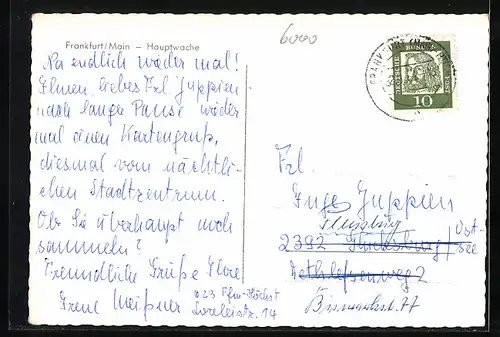 6000
Frankfurt/Main — Hauptwache
Na endlich wieder mal!
Ihnen, liebes Frl Juppien
nach langer Pause wieder
mal einen Kartengruß,
diesmal vom nächtli-
chen Stadtzentrum.
Ob Sie überhaupt noch
sammeln?
Freundliche Grüße Ihre
Irene Meißner
623 Ffm-Höchst
Loreleistr. 14
DEUTSCHE
BUNDESPOST
10
Frl.
Inge Juppien
Flensburg
2392 Glücksburg/Ost-
see
Bismarckst. 77